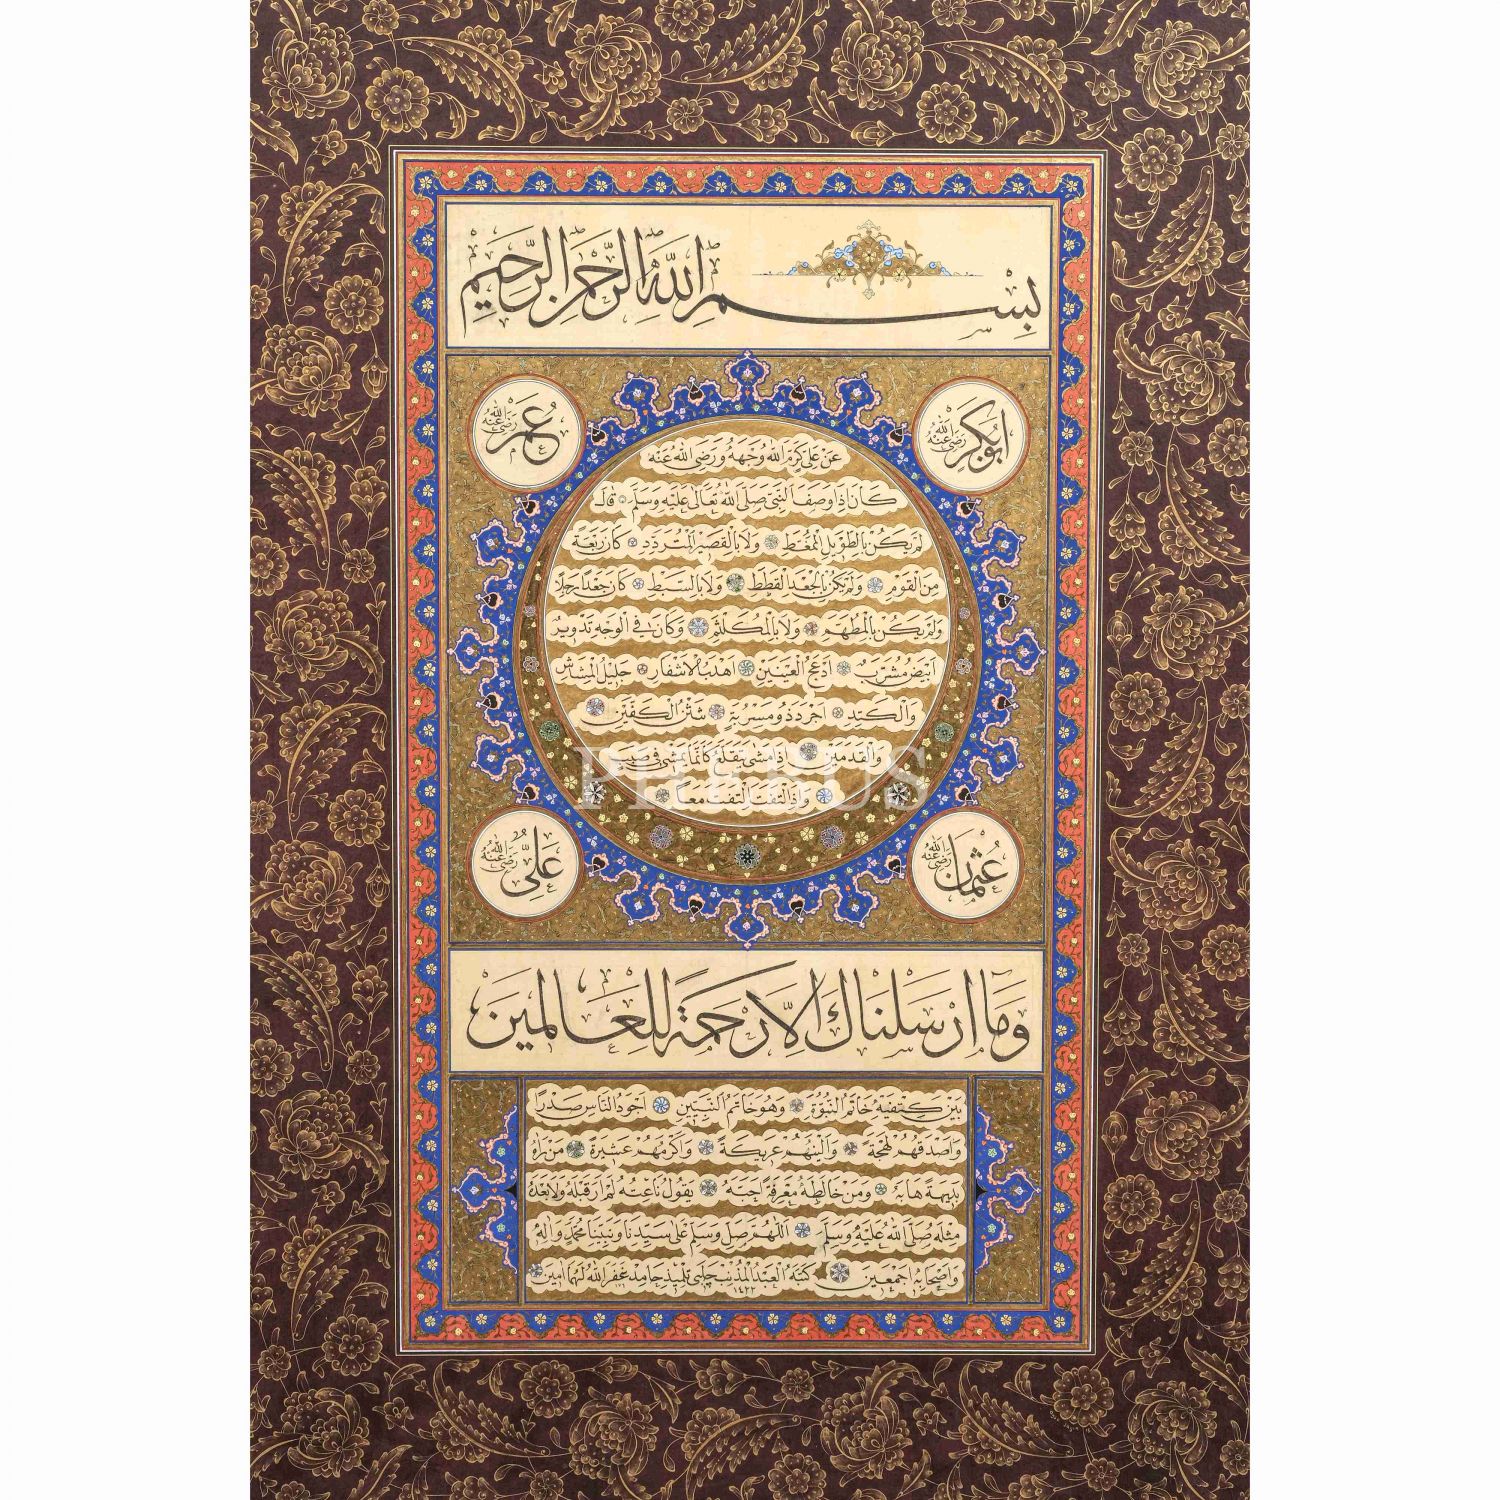 بِسْمِ اللّٰهِ الرَّحْمٰنِ الرَّحِيْمِ
ابُوبَكْر رَضِيَ اللّٰهُ عَنْهُ
عُمَر رَضِيَ اللّٰهُ عَنْهُ
عَنْ عَلِيٍّ كَرَّمَ اللّٰهُ وَجْهَهُ وَرَضِيَ اللّٰهُ عَنْهُ
كَانَ اِذَا وَصَفَ النَّبِيَّ صَلَّى اللّٰهُ تَعَالٰى عَلَيْهِ وَسَلَّمَ قَالَ
لَمْ يَكُنْ بِالطَّوِيْلِ الْمُمَغَّطِ وَلَا بِالْقَصِيْرِ الْمُتَرَدِّدِ كَانَ رَبْعَةً
مِنَ الْقَوْمِ وَلَمْ يَكُنْ بِالْجَعْدِ الْقَطَطِ وَلَا بِالسَّبِطِ كَانَ جَعْدًا رَجِلًا
وَلَمْ يَكُنْ بِالْمُطَهَّمِ وَلَا بِالْمُكَلْثَمِ وَكَانَ فِي الْوَجْهِ تَدْوِيْرٌ
اَبْيَضُ مُشْرَبٌ اَدْعَجُ الْعَيْنَيْنِ اَهْدَبُ الْاَشْفَارِ جَلِيْلُ الْمُشَاشِ
وَالْكَتَدِ اَجْرَدُ ذُو مَسْرُبَةٍ شَثْنُ الْكَفَّيْنِ
وَالْقَدَمَيْنِ اِذَا مَشٰى يَتَقَلَّعُ كَاَنَّمَا يَمْشِي فِي صَبَبٍ
وَاِذَا الْتَفَتَ الْتَفَتَ مَعًا
PHEBUS
عُثْمَان رَضِيَ اللّٰهُ عَنْهُ
عَلِيّ رَضِيَ اللّٰهُ عَنْهُ
وَمَا اَرْسَلْنَاكَ اِلَّا رَحْمَةً لِلْعَالَمِيْنَ
بَيْنَ كَتِفَيْهِ خَاتَمُ النُّبُوَّةِ وَهُوَ خَاتَمُ النَّبِيِّيْنَ اَجْوَدُ النَّاسِ صَدْرًا
وَاَصْدَقُهُمْ لَهْجَةً وَاَلْيَنُهُمْ عَرِيْكَةً وَاَكْرَمُهُمْ عَشِيْرَةً مَنْ رَاٰهُ
بَدِيْهَةً هَابَهُ وَمَنْ خَالَطَهُ مَعْرِفَةً اَحَبَّهُ يَقُولُ نَاعِتُهُ لَمْ اَرَ قَبْلَهُ وَلَا بَعْدَهُ
مِثْلَهُ صَلَّى اللّٰهُ عَلَيْهِ وَسَلَّمَ اَللّٰهُمَّ صَلِّ وَسَلِّمْ عَلٰى سَيِّدِنَا وَنَبِيِّنَا مُحَمَّدٍ وَاٰلِهِ
وَاَصْحَابِهِ اَجْمَعِيْنَ كَتَبَهُ الْعَبْدُ الْمُذْنِبُ چلبي تلميذ حامد غَفَرَ اللّٰهُ لَهُمَا اٰمِيْن ١٤٢٢